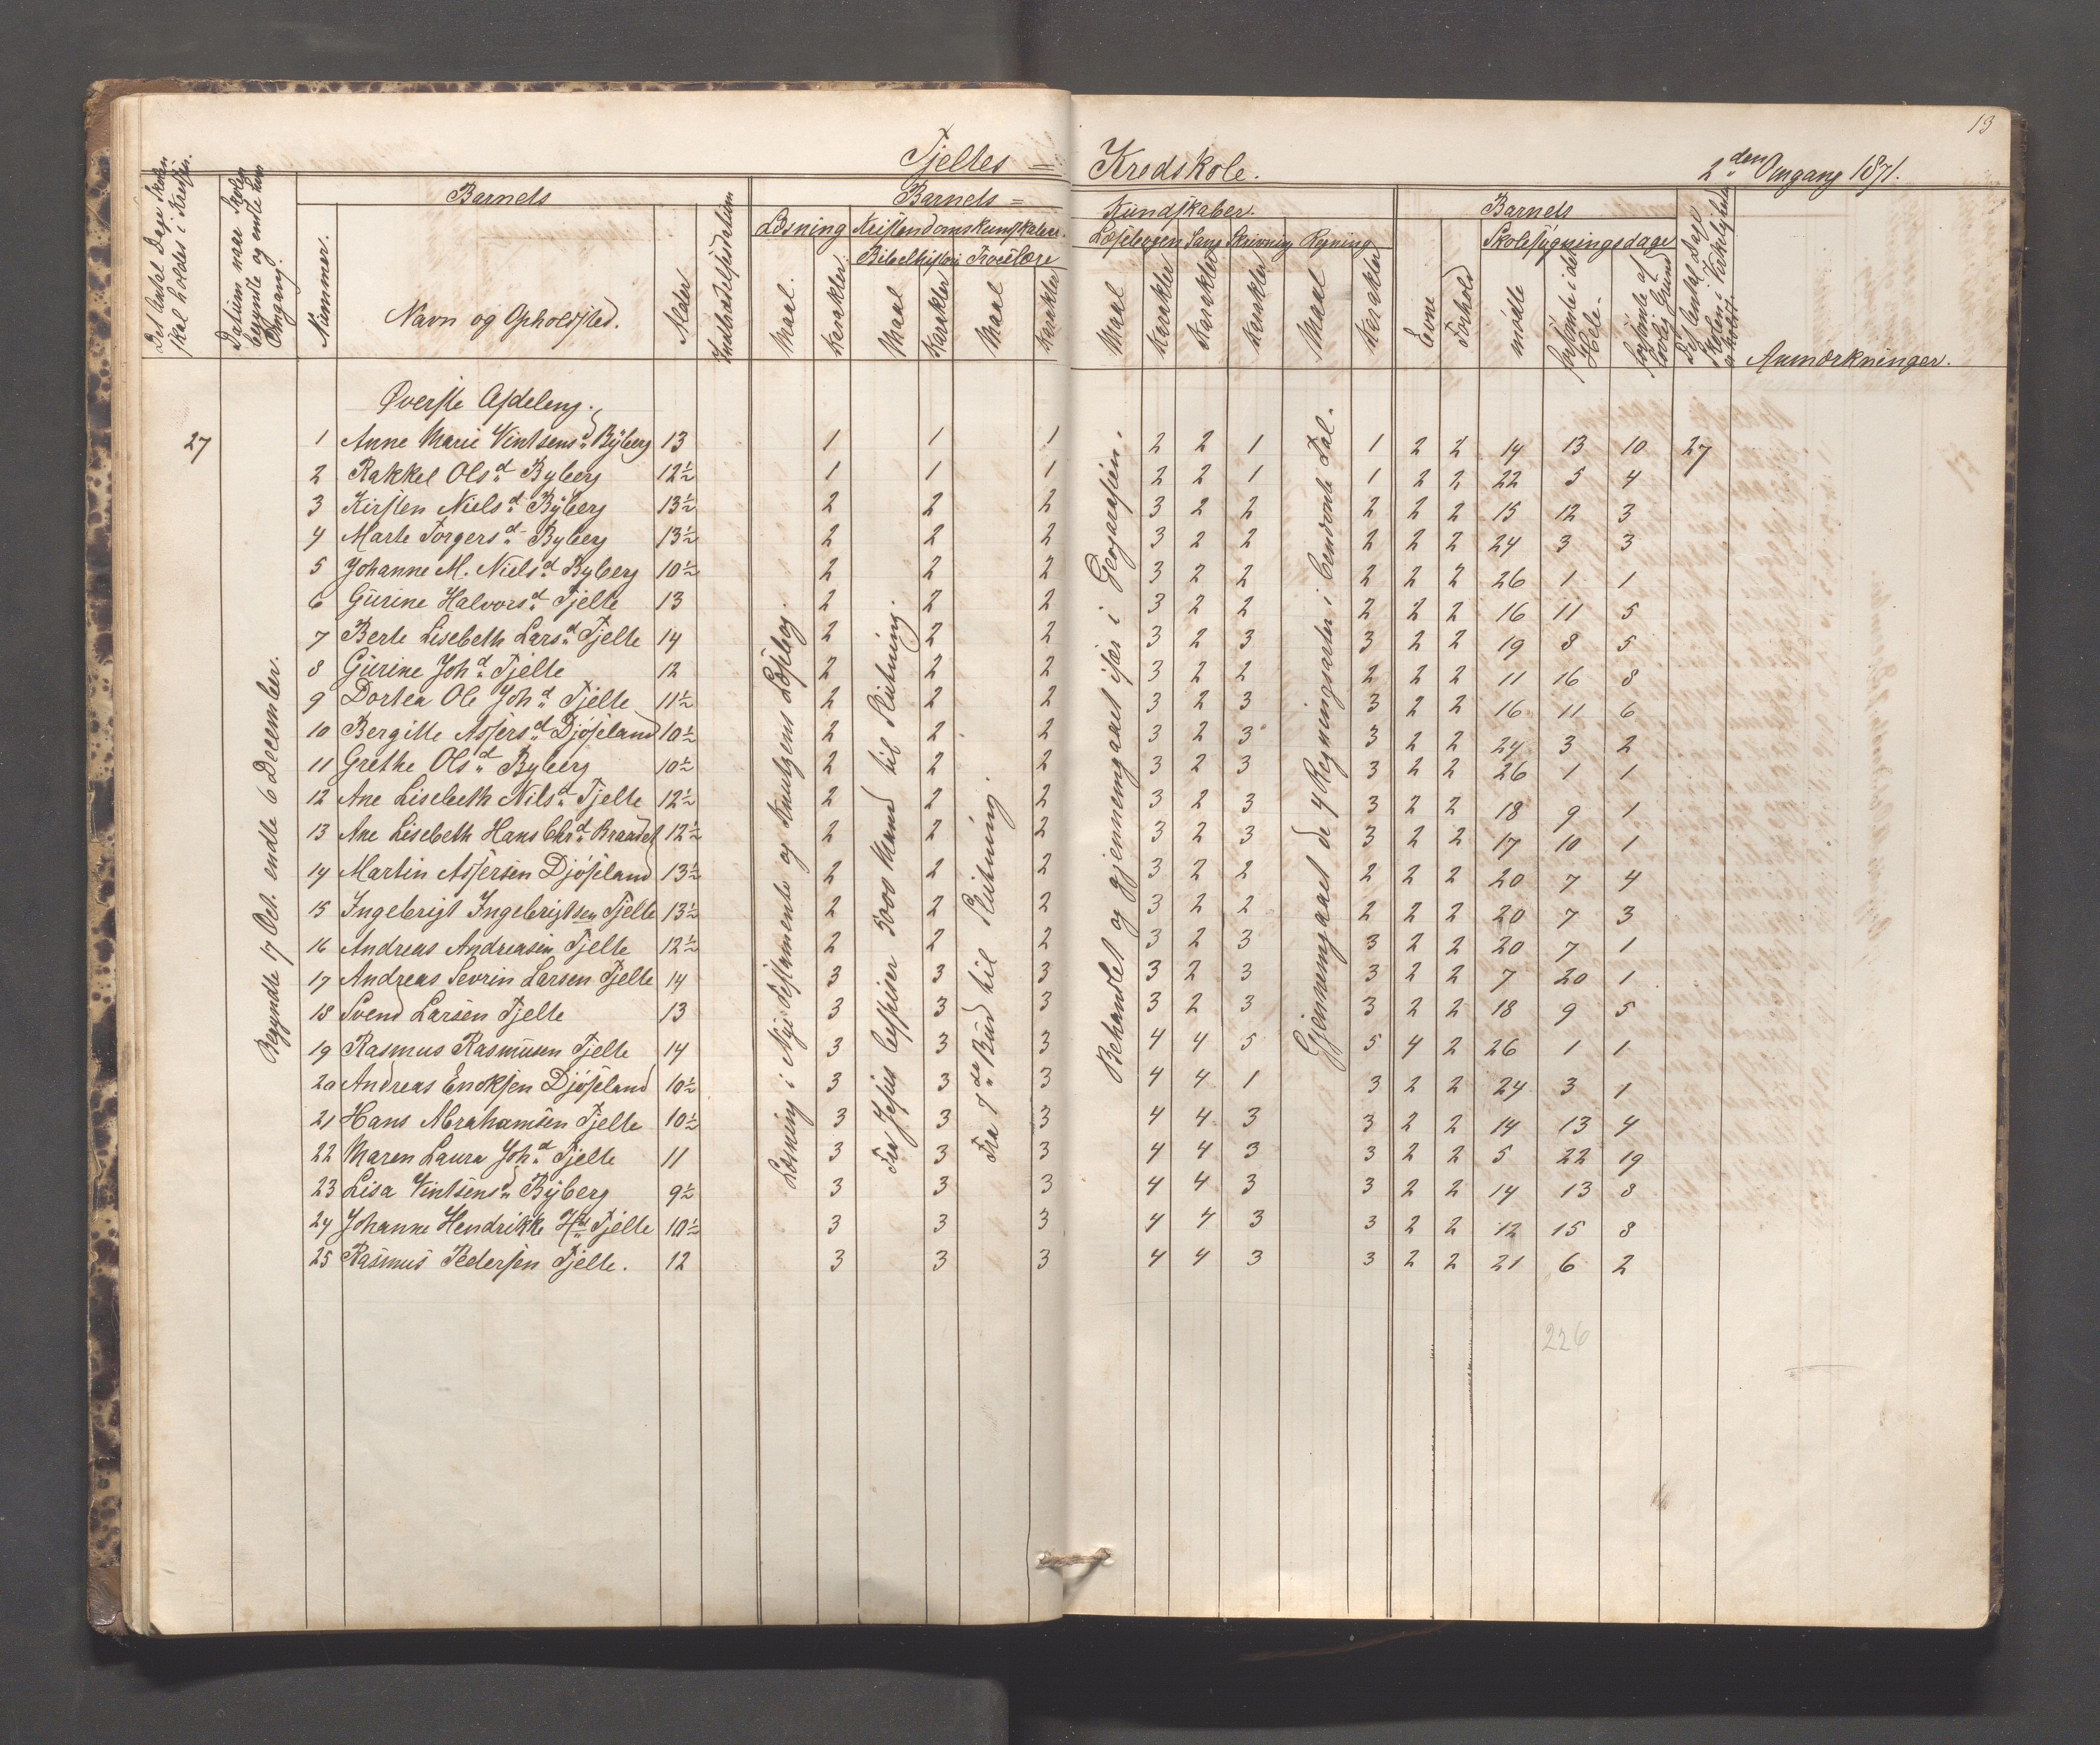 13
Tjeltes = Kredskole. 2den Omgang 1871.
Det Antal Dage Skolen skal holdes i Kredsen.
Datum naar Skolen begyndte og endte hver Omgang.
Barnets
Nummer.
Navn og Opholdsted.
Alder
Indtrædelsesdatum
Barnets = Kundskaber.
Læsning Kristendomskundskaber. Læsebogen Sang Skrivning Regning
Bibelhistorie Troeslære
Maal. Karakter Maal Karakter Maal Karakter Maal Karakter Karakter Karakter Maal Karakter
Barnets
Evne Forhold
Skolesøgningsdage
mødte forsømte i det Hele. forsømte af lovlig Grund
Det Antal Dage Skolen i Virkelighed er holdt
Anmærkninger.
Øverste Afdeling.
Begyndte 17 Oct. endte 6 December.
Læsning i Nye Testamente og Knutzens Læsebog.
Fra Jesus bespiser 5000 Mand til Slutning.
Fra 7de Bud til Slutning.
Behandlet og gjennemgaaet især i Geografien.
Gjennemgaaet de 4 Regningsarter i benævnte Tal.
27 1 Anne Marie Vintsensd Byberg 13 1 1 1 2 2 1 1 2 2 14 13 10 27
2 Rakkel Olsd Byberg 12½ 1 1 1 2 2 1 1 2 2 22 5 4
3 Kirsten Nielsd Byberg 13½ 2 2 2 3 2 2 2 2 2 15 12 3
4 Marte Torgersd Byberg 13½ 2 2 2 3 2 2 2 2 2 24 3 3
5 Johanne M. Nielsd Byberg 10½ 2 2 2 3 2 2 2 2 2 26 1 1
6 Gurine Halvorsd Tjelte 13 2 2 2 3 2 2 2 2 2 16 11 5
7 Berte Lisebeth Larsd Tjelte 14 2 2 2 3 2 3 3 2 2 19 8 5
8 Gurine Johd Tjelte 12 2 2 2 3 2 2 2 2 2 11 16 8
9 Dortea Ole Johd Tjelte 11½ 2 2 2 3 2 3 3 2 2 16 11 6
10 Bergitte Assersd Djøseland 10½ 2 2 2 3 2 3 3 2 2 24 3 2
11 Grethe Olsd Byberg 10½ 2 2 2 3 2 3 3 2 2 26 1 1
12 Ane Lisebeth Nilsd Tjelte 12½ 2 2 2 3 2 3 3 2 2 18 9 1
13 Ane Lisebeth Hans Chrd 12½ 2 2 2 3 2 3 3 2 2 17 10 1
14 Martin Assersen Djøseland 13½ 2 2 2 3 2 2 2 2 2 20 7 4
15 Ingebrigt Ingebrigtsen Tjelte 13½ 2 2 2 3 2 2 2 2 2 20 7 3
16 Andreas Andreasen Tjelte 12½ 2 2 2 3 2 3 3 2 2 20 7 1
17 Andreas Sevrin Larsen Tjelte 14 3 3 3 3 2 3 3 2 2 7 20 1
18 Svend Larsen Tjelte 13 3 3 3 3 2 3 3 2 2 18 9 5
19 Rasmus Rasmusen Tjelte 14 3 3 3 4 4 5 5 4 2 26 1 1
20 Andreas Enoksen Djøseland 10½ 3 3 3 4 4 1 3 2 2 24 3 1
21 Hans Abrahamsen Tjelte 10½ 3 3 3 4 4 3 3 2 2 14 13 4
22 Maren Laura Johd Tjelte 11 3 3 3 4 4 3 3 2 2 5 22 19
23 Lisa Vintsensd Byberg 9½ 3 3 3 4 4 3 3 2 2 14 13 8
24 Johanne Hendrikke Hd Tjelte 10½ 3 3 3 4 4 3 3 2 2 12 15 8
25 Rasmus Pedersen Tjelte. 12 3 3 3 4 4 3 3 2 2 21 6 2
226